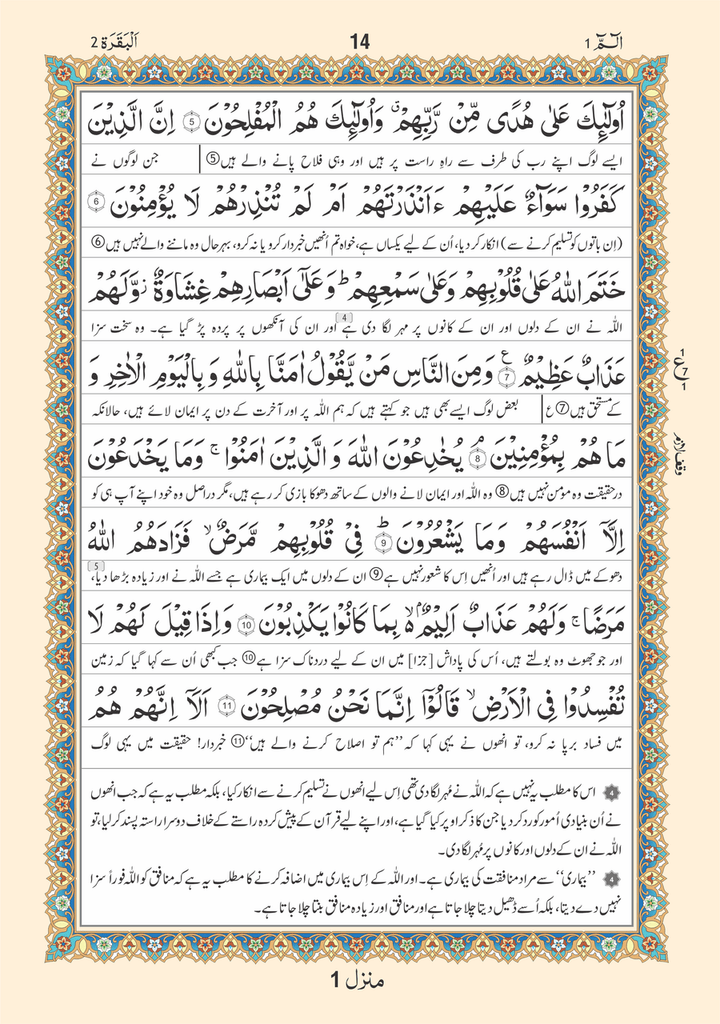 الٓمّٓ 1
14
اَلْبَقَرَة 2
اُولٰٓئِكَ عَلٰى هُدًى مِّنْ رَّبِّهِمْ ۗ وَاُولٰٓئِكَ هُمُ الْمُفْلِحُوْنَ ۝5 اِنَّ الَّذِيْنَ
ایسے لوگ اپنے رب کی طرف سے راہِ راست پر ہیں اور وہی فلاح پانے والے ہیں ⑤ جن لوگوں نے
كَفَرُوْا سَوَآءٌ عَلَيْهِمْ ءَاَنْذَرْتَهُمْ اَمْ لَمْ تُنْذِرْهُمْ لَا يُؤْمِنُوْنَ ۝6
(اِن باتوں کو تسلیم کرنے سے) انکار کر دیا، اُن کے لیے یکساں ہے، خواہ تم اُنھیں خبردار کرو یا نہ کرو، بہرحال وہ ماننے والے نہیں ہیں ⑥
خَتَمَ اللهُ عَلٰى قُلُوْبِهِمْ وَعَلٰى سَمْعِهِمْ ؕ وَعَلٰٓى اَبْصَارِهِمْ غِشَاوَةٌ ز وَّلَهُمْ
اللہ نے ان کے دلوں اور ان کے کانوں پر مہر لگا دی ہے [4] اور ان کی آنکھوں پر پردہ پڑ گیا ہے۔ وہ سخت سزا
عَذَابٌ عَظِيْمٌ ۝7 ع وَمِنَ النَّاسِ مَنْ يَّقُوْلُ اٰمَنَّا بِاللهِ وَبِالْيَوْمِ الْاٰخِرِ وَ
1 ع 7 1
کے مستحق ہیں ⑦ ع بعض لوگ ایسے بھی ہیں جو کہتے ہیں کہ ہم اللہ پر اور آخرت کے دن پر ایمان لائے ہیں، حالانکہ
مَا هُمْ بِمُؤْمِنِيْنَ ۝8 ۘ يُخٰدِعُوْنَ اللهَ وَ الَّذِيْنَ اٰمَنُوْا ۚ وَمَا يَخْدَعُوْنَ
وقف لازم
درحقیقت وہ مومن نہیں ہیں ⑧ وہ اللہ اور ایمان لانے والوں کے ساتھ دھوکا بازی کر رہے ہیں، مگر دراصل وہ خود اپنے آپ ہی کو
اِلَّآ اَنْفُسَهُمْ وَمَا يَشْعُرُوْنَ ۝9 ؕ فِيْ قُلُوْبِهِمْ مَّرَضٌ ۙ فَزَادَهُمُ اللهُ
دھوکے میں ڈال رہے ہیں اور اُنھیں اِس کا شعور نہیں ہے ⑨ ان کے دلوں میں ایک بیماری ہے جسے اللہ نے اور زیادہ بڑھا دیا، [5]
مَرَضًا ۚ وَلَهُمْ عَذَابٌ اَلِيْمٌۢ ۙ بِمَا كَانُوْا يَكْذِبُوْنَ ۝10 وَاِذَا قِيْلَ لَهُمْ لَا
اور جو جھوٹ وہ بولتے ہیں، اُس کی پاداش [جزا] میں ان کے لیے دردناک سزا ہے ⑩ جب کبھی اُن سے کہا گیا کہ زمین
تُفْسِدُوْا فِى الْاَرْضِ ۙ قَالُوْٓا اِنَّمَا نَحْنُ مُصْلِحُوْنَ ۝11 اَلَآ اِنَّهُمْ هُمُ
میں فساد برپا نہ کرو، تو انھوں نے یہی کہا کہ ’’ہم تو اصلاح کرنے والے ہیں‘‘ ⑪ خبردار! حقیقت میں یہی لوگ
4 اس کا مطلب یہ نہیں ہے کہ اللہ نے مُہر لگا دی تھی اِس لیے انھوں نے تسلیم کرنے سے انکار کیا، بلکہ مطلب یہ ہے کہ جب انھوں
نے اُن بنیادی اُمور کو رد کر دیا جن کا ذکر اوپر کیا گیا ہے، اور اپنے لیے قرآن کے پیش کردہ راستے کے خلاف دوسرا راستہ پسند کر لیا، تو
اللہ نے ان کے دلوں اور کانوں پر مُہر لگا دی۔
4 ’’بیماری‘‘ سے مراد منافقت کی بیماری ہے۔ اور اللہ کے اِس بیماری میں اضافہ کرنے کا مطلب یہ ہے کہ منافق کو اللہ فوراً سزا
نہیں دے دیتا، بلکہ اُسے ڈھیل دیتا چلا جاتا ہے اور منافق اور زیادہ منافق بنتا چلا جاتا ہے۔
منزل 1